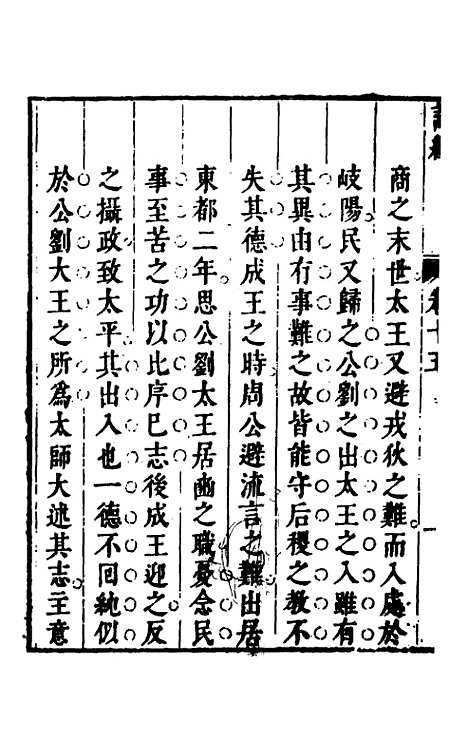 商之末世太王又避戎狄之難而入處於
岐陽民又歸之公劉之出太王之入雖有
其異由有事難之故皆能守后稷之教不
失其德成王之時周公避流言之難出居
東都二年思公劉太王居豳之職憂念民
事至苦之功以比序巳志後成王迎之反
之攝政致太平其出入也一德不回純似
於公劉大王之所爲太師大述其志主意
卷十五
一